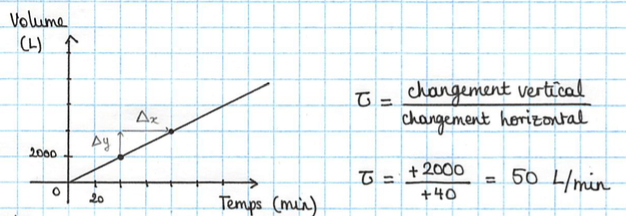 Volume
(L)
Δx
Δy
2000
0
20
Temps (min)
τ = changement vertical
changement horizontal
τ = +2000 / +40 = 50 L/min